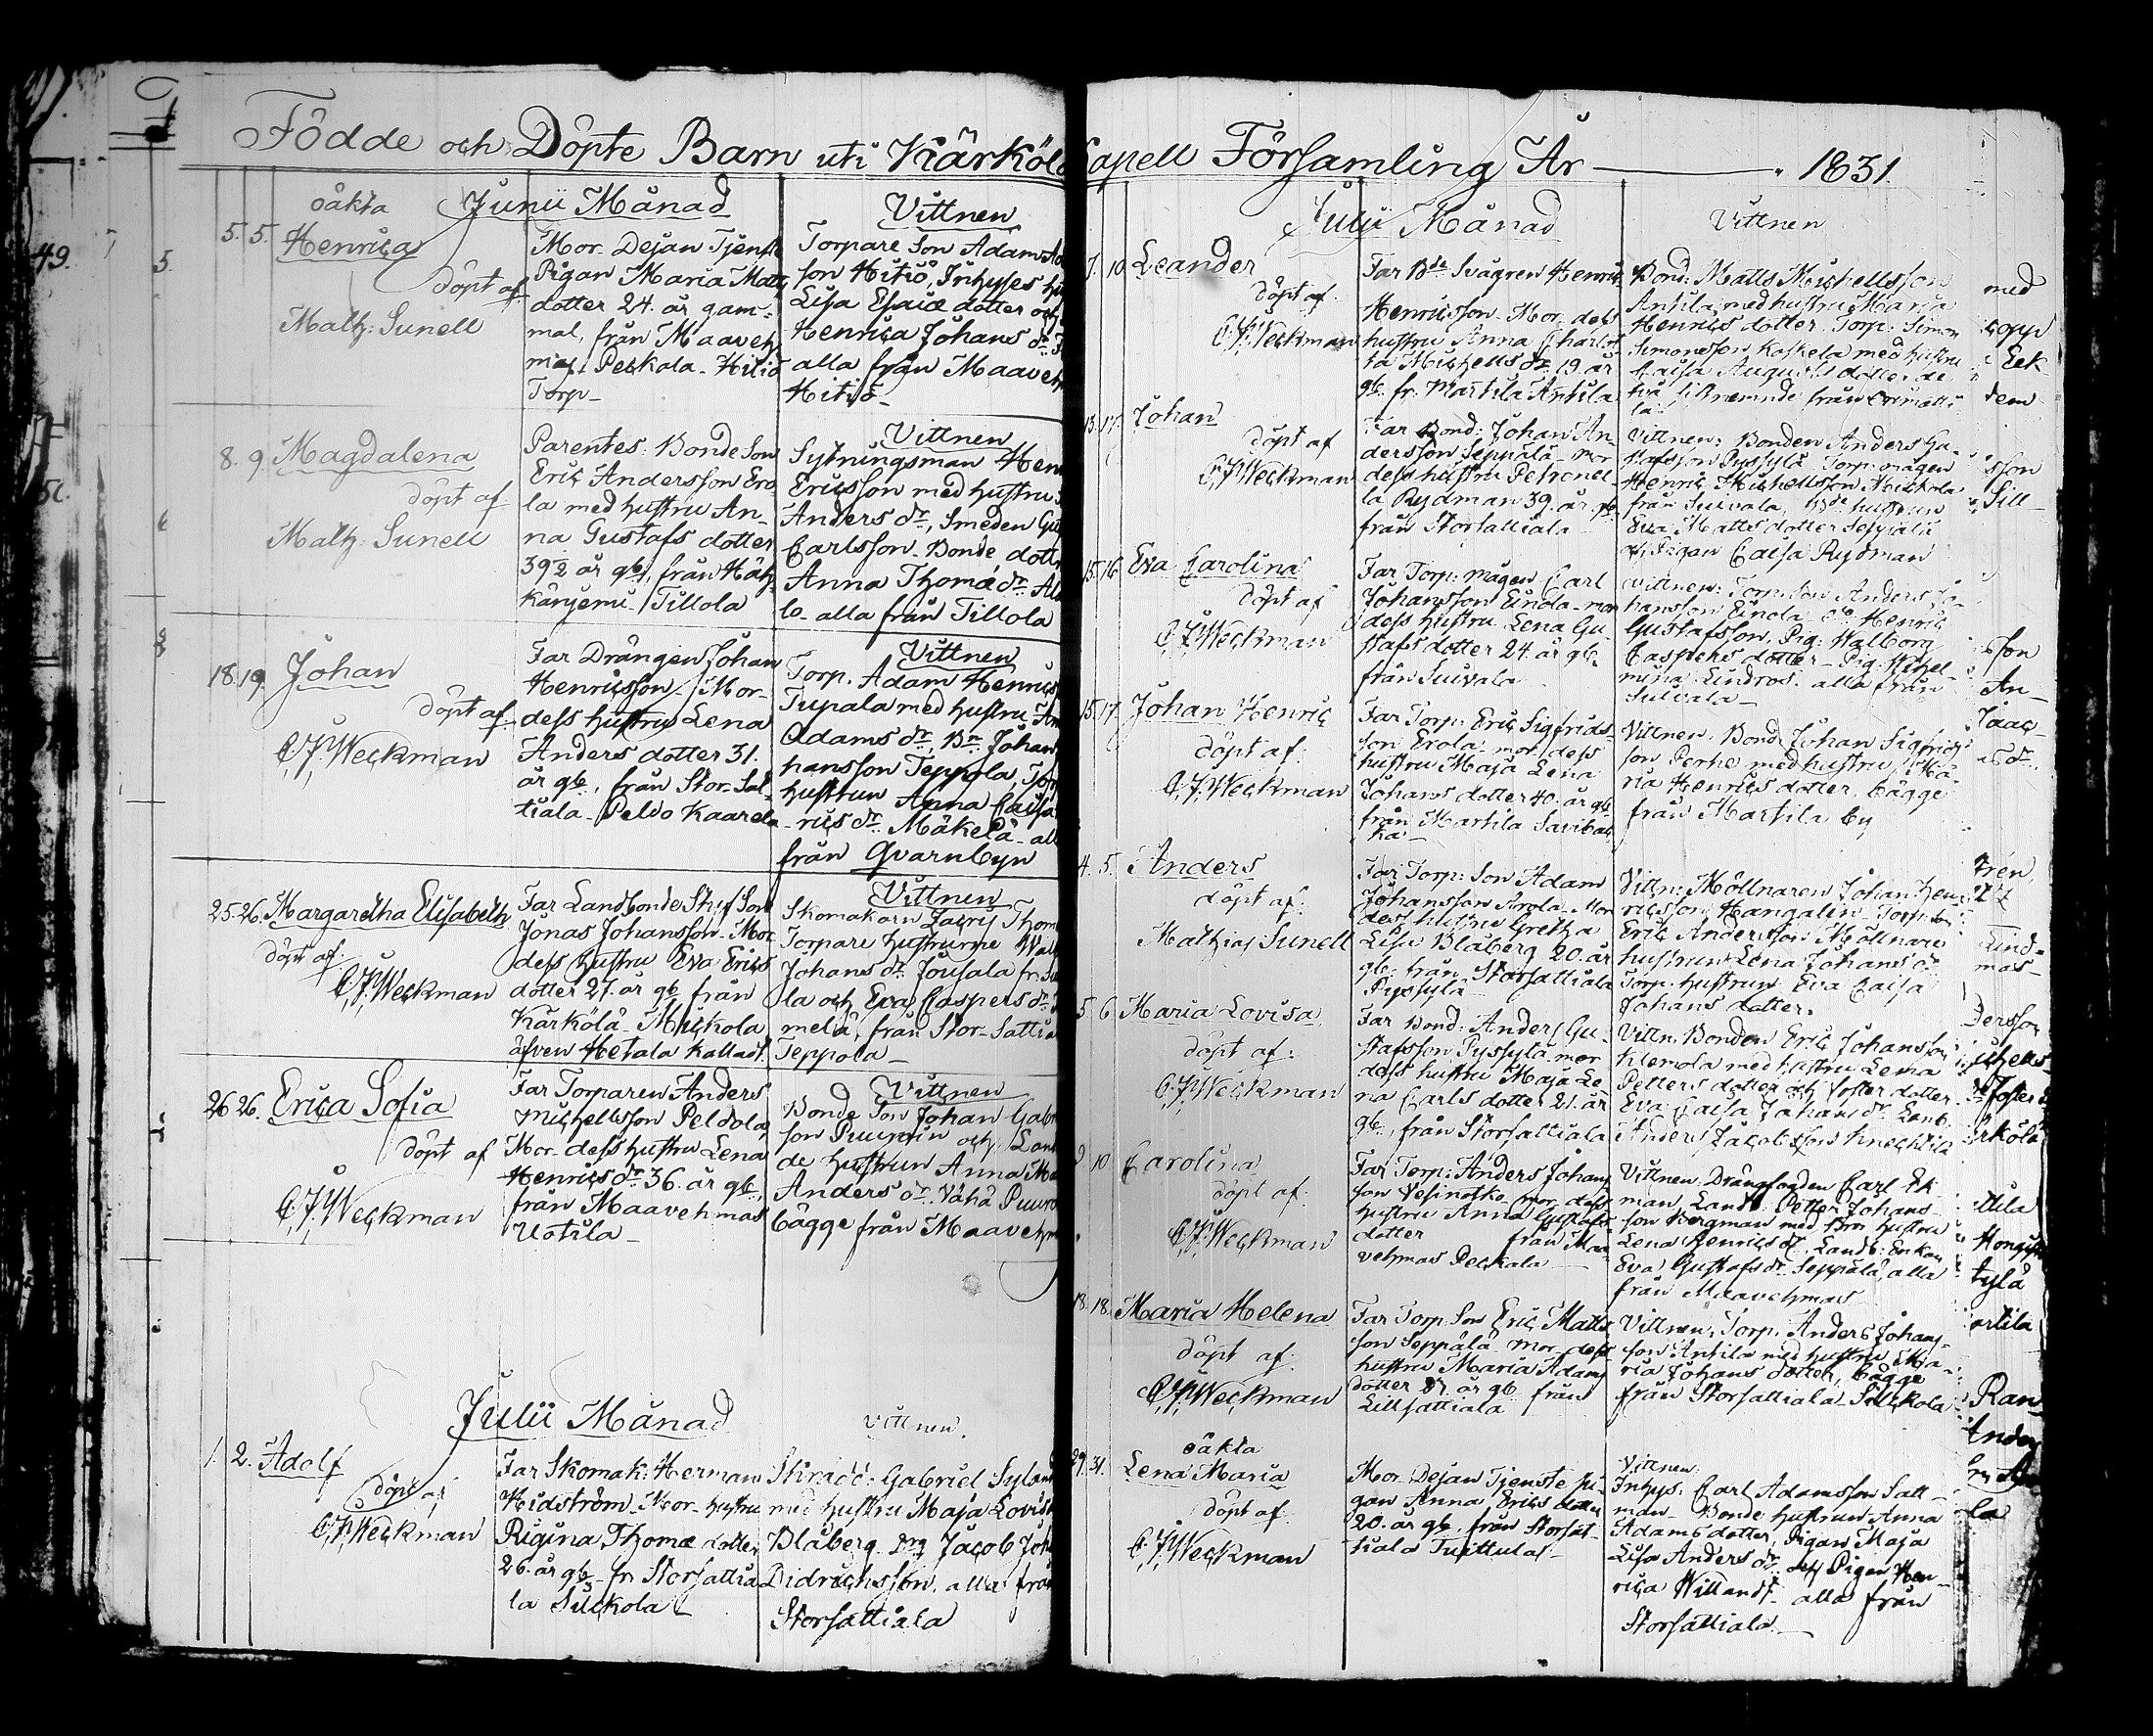 Födde och Döpte Barn uti Kärkölä Capell Församling År 1831.
oäkta Junii Månad Vittnen
5. 5. Henrica
döpt af
Math: Sunell
Mor. Dejan Tjenste
Pigan Maria Matts
dotter 24. år gam-
mal, från Maaveh-
mas Peckala Hitiö
Torp
Torpare Son Adam
son Hitiö, Inhyses
Lisa Esaiæ dotter och
Henrica Johans dr
alla från Maaveh
Hitiö
8. 9. Magdalena
döpt af
Math: Sunell
Parentes: Bonde Son
Eric Andersson Ero
la med hustru An-
na Gustafs dotter
39½ år gb, från Häh-
känjemi Tillola
Vittnen
Sytningsman Hen
Ericsson med hustru
Anders dr, Smeden
Carlsson Bonde dott
Anna Thomæ dr
lo alla från Tillola
18. 19. Johan
döpt af
C. J. Weckman
Far Drängen Johan
Henricsson Mor
dess hustru Lena
Anders dotter 31.
år gb, från Stor Sat-
tiala Peldo Kaarela
Vittnen
Torp. Adam Henrics
Tupala med hustru
Adams dr, Bn Johan
hansson Teppola, Torp
hustrun Anna Caisa
rics dr Mäkelä all
från Qvarnbyn
25. 26. Margaretha Elisabeth
döpt af
C. J. Weckman
Far Landbonde Styf Son
Jonas Johansson Mor
dess hustru Eva Erics
dotter 27. år gb från
Kärkölä Mickola
äfven Hetala kallad
Vittnen
Skomakarn Zacris Thom
Torpare hustrurne Wal
Johans dr Jousala fr.
la och Eva Caspers dr
melä, från Stor Sattia
Teppola
26. 26. Erica Sofia
döpt af
C. J. Weckman
Far Torparen Anders
Michelsson Peldola
Mor dess hustru Lena
Henrics dr 36. år gb,
från Maavehmas
Uotila
Vittnen
Bonde Son Johan Gabr
son Puuroin och Lan
de hustrun Anna Ma
Anders dr Vähä Puuro
bägge från Maavehm
Julii Månad Vittnen.
1. 2. Adolf
döpt af
C. J. Weckman
Far Skomak: Herman
Hidström Mor hustru
Rigina Thomæ dotter
26. år gb fr. Storsattia
la Silckola
Skrädd: Gabriel Sylan
med hustru Maja Lovisa
Blåberg Jacob Joh
Didrichsson, alla från
Storsattiala
Julii Månad Vittnen
7. 10. Leander
döpt af
C. J. Weckman
Far Bde Svågren Henric
Henricsson Mor dess
hustru Anna Charlot
ta Michels dr 19. år
gb. fr. Martila Antila
Bond: Matts Michelsson
Antila med hustru Maria
Henrics dotter, Torp: Simon
Simonsson Koskela med hustru
Caisa Augusti dotter de
två sistnemnde från Orimatti
la
13. 17. Johan
döpt af
C. J. Weckman
Far Bond: Johan An-
dersson Seppälä Mor
dess hustru Petronel-
la Rydman 39. år gb
från Storsattiala
Vittnen: Bonden Anders Gu-
stafsson Pyssylä Torp: mågen
Henric Michelsson Mickola
från Suivala, Bde hustrun
Eva Matts dotter Seppälä
Pigan Caisa Rydman
15. 16. Eva Carolina
döpt af
C. J. Weckman
Far Torp: mågen Carl
Johansson Einola mor
dess hustru Lena Gu-
stafs dotter 24. år gb
från Suivala
Vittnen: Torp: Son Anders Jo-
hansson Einola Henric
Gustafsson, Pig: Walborg
Caspers dotter Pig: Wilhel-
mina Lindros. alla från
Suivala
15. 17. Johan Henric
döpt af
C. J. Weckman
Far Torp: Eric Sigfrids-
son Erola mor dess
hustru Maja Lena
Johans dotter 40. år gb
från Martila
Vittnen. Bond Johan Sigfrids
son Perhe med hustru Ma-
ria Henrics dotter, bägge
från Martila by
4. 5. Anders
döpt af
Mathias Sunell
Far Torp: Son Adam
Johansson Arola Mor
dess hustru Gretha
Lisa Blåberg 20. år
gb från Storsattiala
Pyssylä
Vittn: Möllnaren Johan Hen-
ricsson Hangalin Torp: Son
Eric Andersson Möllnare
hustrun Lena Johans dr
Torp. hustrun Eva Caisa
Johans dotter
5. 6. Maria Lovisa
döpt af
C. J. Weckman
Far Bond: Anders Gu-
stafsson Pyssylä mor
dess hustru Maja Le-
na Carls dotter 21. år
gb, från Storsattiala
Vittn: Bonden Eric Johansson
Klemola med hustru Lena
Petters dotter och foster dotter
Eva Caisa Johans dr Landb.
Anders Jacobsson Knechtilä
9 10 Carolina
döpt af
C. J. Weckman
Far Torp: Anders Johans
son Vesinotko mor dess
hustru Anna Gustafs
dotter från Maa
vehmas Peckala
Vittnen: Drängfogden Carl Ek-
man, Landb. Petter Johans-
son Bergman med Bror hustru
Lena Henrics dr, Landb: Enkan
Eva Gustafs dr Seppälä, alla
från Maavehmas
18. 18. Maria Helena
döpt af
C. J. Weckman
Far Torp Son Eric Matts
son Seppälä Mor dess
hustru Maria Adams
dotter 27 år gb från
Lillsattiala
Vittnen: Torp: Anders Johans-
son Antila med hustru Ma-
ria Johans dotter, bägge
från Storsattiala Silckola
oäkta
29. 31. Lena Maria
döpt af
C. J. Weckman
Mor Dejan Tjenste Pi-
gan Anna Erics dotter
20. år gb, från Storsat-
tiala Tuittula
Vittnen
Inhys: Carl Adamsson Satt
man Bonde hustrun Anna
Adams dotter, Pigan Maja
Lisa Anders dr och Pigan Hen-
rica Willandt alla från
Storsattiala